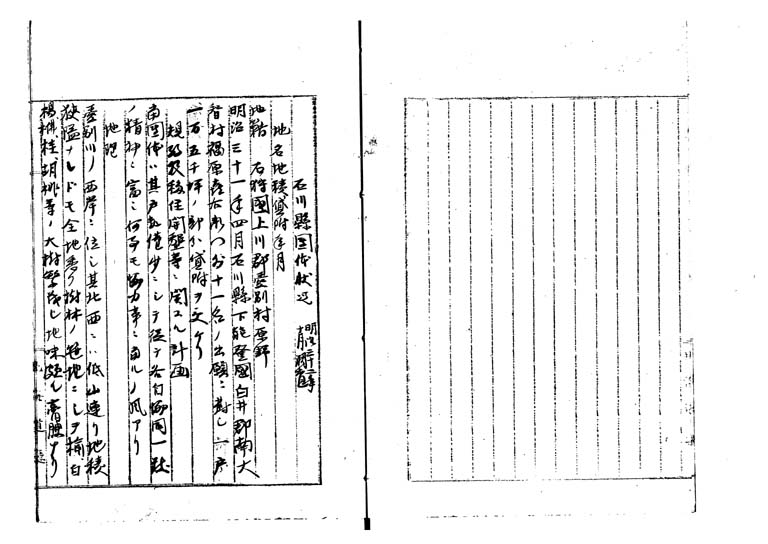 石川縣団体状况 明治三十二年
地名地積貸附年月
地勢 石狩國上川郡愛別村原野
明治三十一年四月石川縣下能登國臼井郡南大
村福原 外十一名ノ出願ニ對シ一戸
一万五千坪ノ割ヲ以貸附ヲ受ケリ
規約及移住開墾等ニ関スル計画
当団体ハ其戸数僅少ニシテ従テ各自協同一致
ノ精神ニ富ミ何事モ協力事ニ当ルノ風アリ
地理
愛別川ノ西岸ニ位シ其北西ニハ低山連リ地積
狭隘ナレドモ全地悉ク樹林ノ地ニシテ楡白
楊桂胡桃等ノ大樹繁茂シ地味頗ル膏腴ナリ
北海道廳